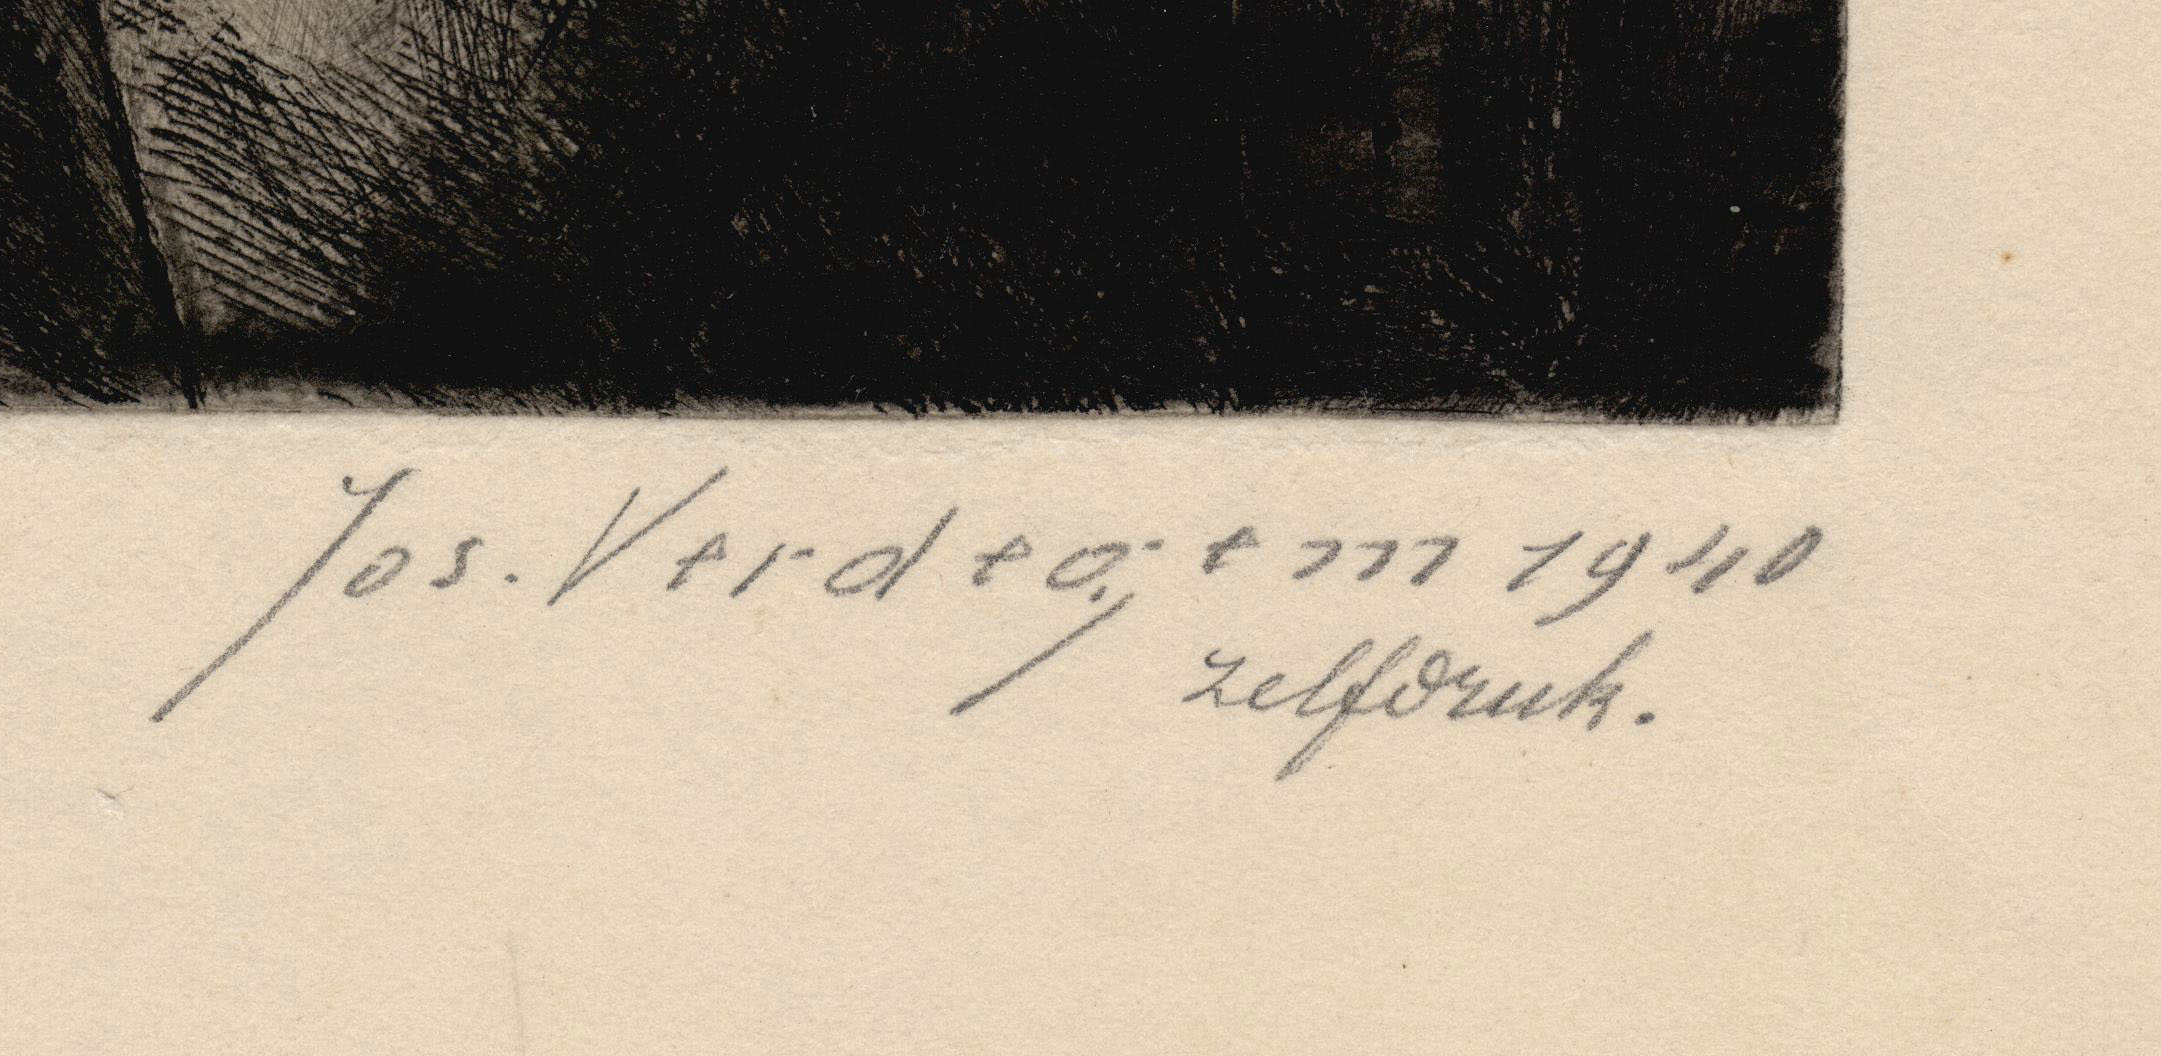 Jos. Verdegem 1940
zelfdruk.